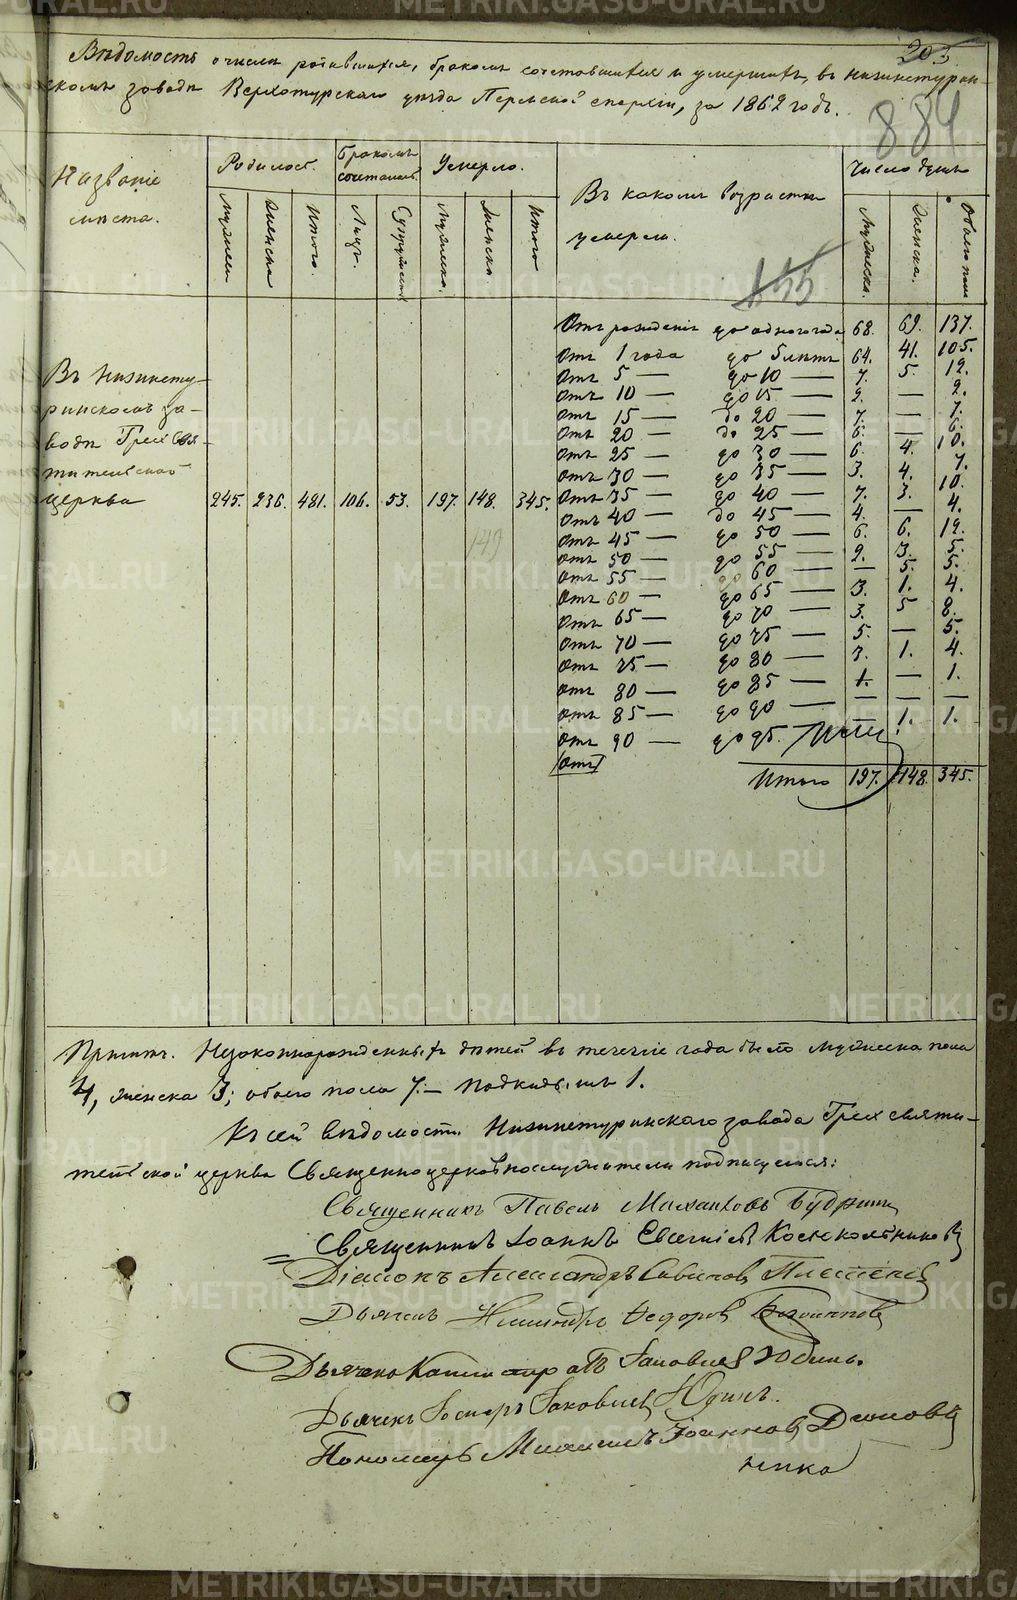 205
Вѣдомость о числѣ родившихся, бракомъ сочетавшихся и умершихъ, въ Нижнетурин-
скомъ заводѣ Верхотурскаго уѣзда Пермской епархіи, за 1862 годъ.
884
Названіе мѣста.
Родилось.
Бракомъ сочеталось
Умерло.
Въ какомъ возрастѣ умерли.
Число душъ
Мужеска Женска Итого. Лицъ. Супружествъ Мужеска. Женска. Итого
Мужеска. Женска. Обоего пола
455
Въ Нижнету-
ринскомъ за-
водѣ Трехсвя-
тительской
церкви 245. 236. 481. 106. 53. 197. 148. 345.
149
Отъ рожденія до одного года 68. 69. 137.
Отъ 1 года до 5 лѣтъ 64. 41. 105.
Отъ 5 — до 10 — 7. 5. 12.
Отъ 10 — до 15 — 2. — 2.
Отъ 15 — до 20 — 7. — 7.
Отъ 20 — до 25 — 6. — 6.
Отъ 25 — до 30 — 6. 4. 10.
Отъ 30 — до 35 — 3. 4. 7.
Отъ 35 — до 40 — 7. 3. 10.
Отъ 40 — до 45 — 4. — 4.
Отъ 45 — до 50 — 6. 6. 12.
Отъ 50 — до 55 — 2. 3. 5.
Отъ 55 — до 60 — — 5. 5.
Отъ 60 — до 65 — 3. 1. 4.
Отъ 65 — до 70 — 3. 5 8.
Отъ 70 — до 75 — 5. — 5.
Отъ 75 — до 80 — 3. 1. 4.
Отъ 80 — до 85 — 1. — 1.
Отъ 85 — до 90 — — — —
Отъ 90 — до 95. — 1. 1.
Отъ
Итого 197. 148. 345.
Примѣч. Незаконнорожденныхъ дѣтей въ теченіе года было мужеска пола
4, женска 3; обоего пола 7. — Подкидышъ 1.
Къ сей вѣдомости Нижнетуринскаго завода Трехсвяти-
тельской церкви Священноцерковнослужители подписуемся:
Священникъ Павелъ Михайловъ Будринъ
Священникъ Іоаннъ Евгеніевъ Костколѣтниковъ
Діаконъ Александръ Саввиновъ Плетенев
Дьячекъ Федоров
Дьячекъ Іаковлев Юдинъ.
Дьячекъ Іаковлев Юдинъ.
Пономарь Михаилъ Іоаннов
METRIKI.GASO-URAL.RU